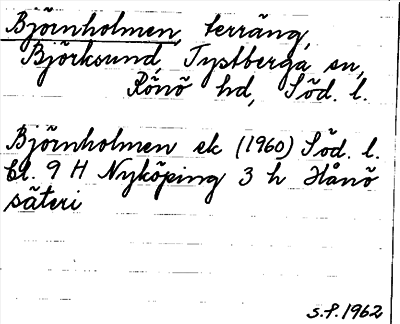 Björnholmen, terräng,
Björksund, Tystberga sn,
Rönö hd, Söd. l.
Björnholmen ek (1960) Söd. l.
bl. 9 H Nyköping 3 h Hånö
säteri
s.f. 1962